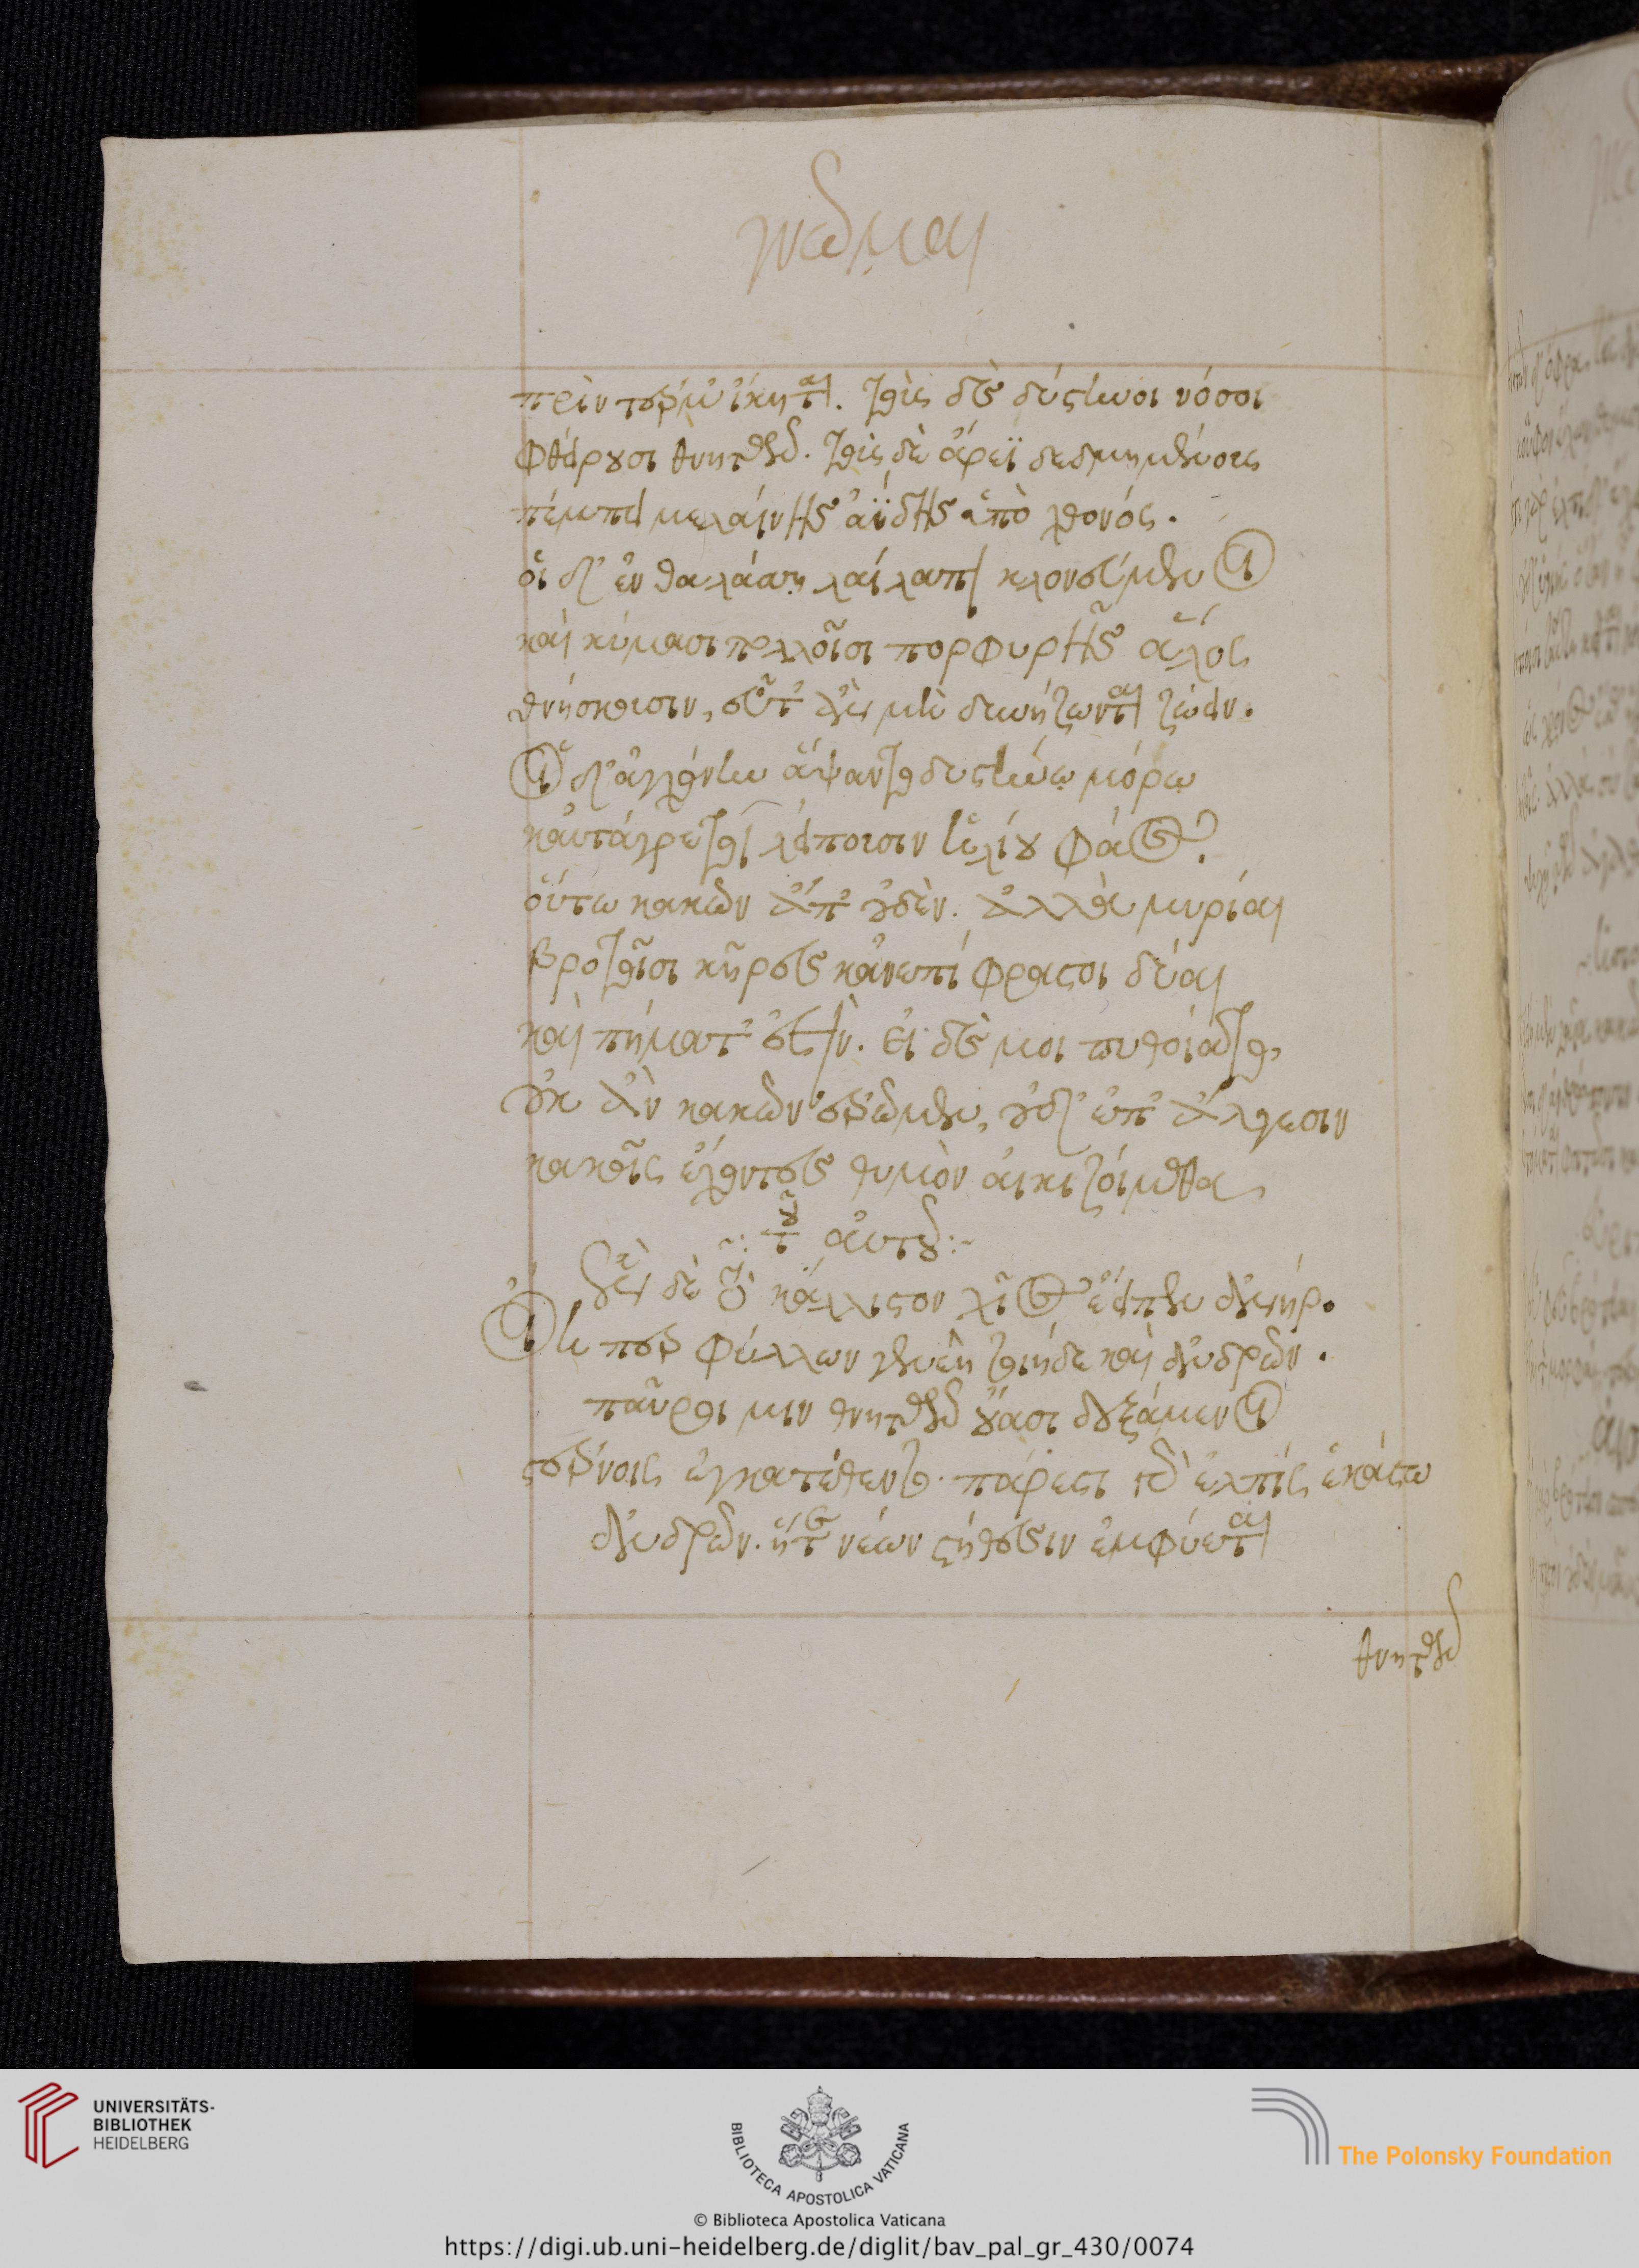 γνῶμαι
πρὶν τέρμ' ἵκηται. τοὺς δὲ δύστηνοι νόσοι
φθείρουσι θνητῶν. τοὺς δὲ ἄρεϊ δεδμημένους
πέμπει μελαίνης ἀΐδης ὑπὸ χθονός.
οἱ δ' ἐν θαλάσσῃ λαίλαπι κλονεόμενοι
καὶ κύμασι πολλοῖσι πορφυρῆς ἁλός
θνήσκουσιν, εὖτ' ἂν μὴ δυνήσωνται ζώειν.
οἱ δ' ἀγχόνην ἅψαντο δυστήνῳ μόρῳ
καὐτάγρετοι λείπουσιν ἡλίου φάος.
οὕτω κακῶν ἄπ' οὐδὲν. ἀλλὰ μυρίαι
βροτοῖσι κῆρες κἀνεπίφραστοι δύαι
καὶ πήματ' ἐστὶν. εἰ δὲ μοι πυθοίατο,
οὐκ ἂν κακῶν ἐρῶμεν, οὐδ' ἐπ' ἄλγεσιν
κακοῖς ἔχοντες θυμὸν αἰκιζοίμεθα,
:τοῦ αὐτοῦ:~
ἓν δὲ τὸ κάλλιστον χῖος ἔειπεν ἀνήρ.
οἵη περ φύλλων γενεὴ τοιήδε καὶ ἀνδρῶν.
παῦροι μιν θνητῶν οὔασι δεξάμενοι
στέρνοις ἐγκατέθεντο. πάρεστι γὰρ ἐλπὶς ἑκάστω
ἀνδρῶν. ἥτε νέων στήθεσιν ἐμφύεται
θνητῶν
UNIVERSITÄTS-
BIBLIOTHEK
HEIDELBERG
BIBLIOTECA APOSTOLICA VATICANA
The Polonsky Foundation
© Biblioteca Apostolica Vaticana
https://digi.ub.uni-heidelberg.de/diglit/bav_pal_gr_430/0074